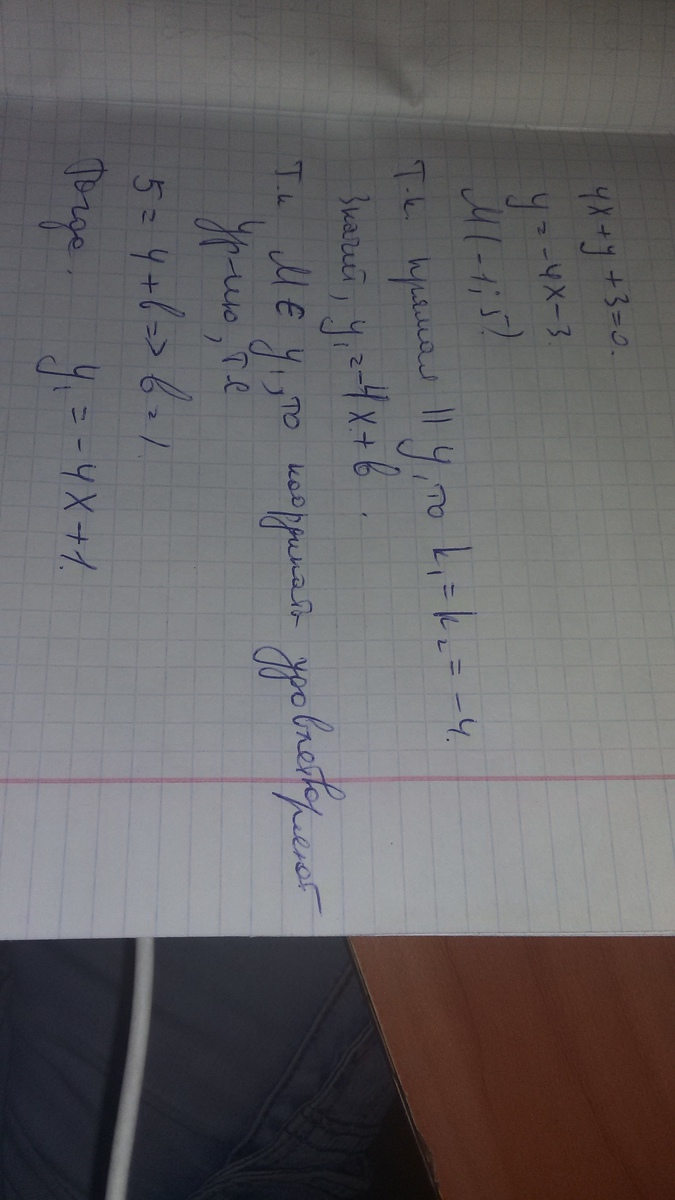 4x+y+3=0.
y = -4x-3.
M(-1; 5)
Т.к. прямая || y, то k₁=k₂ = -4.
Значит, y₁=-4x+b.
Т.к M ∈ y₁, то координаты удовлетворяют
ур-ию, т.е
5 = 4+b => b = 1.
Тогда. y₁ = -4x+1.